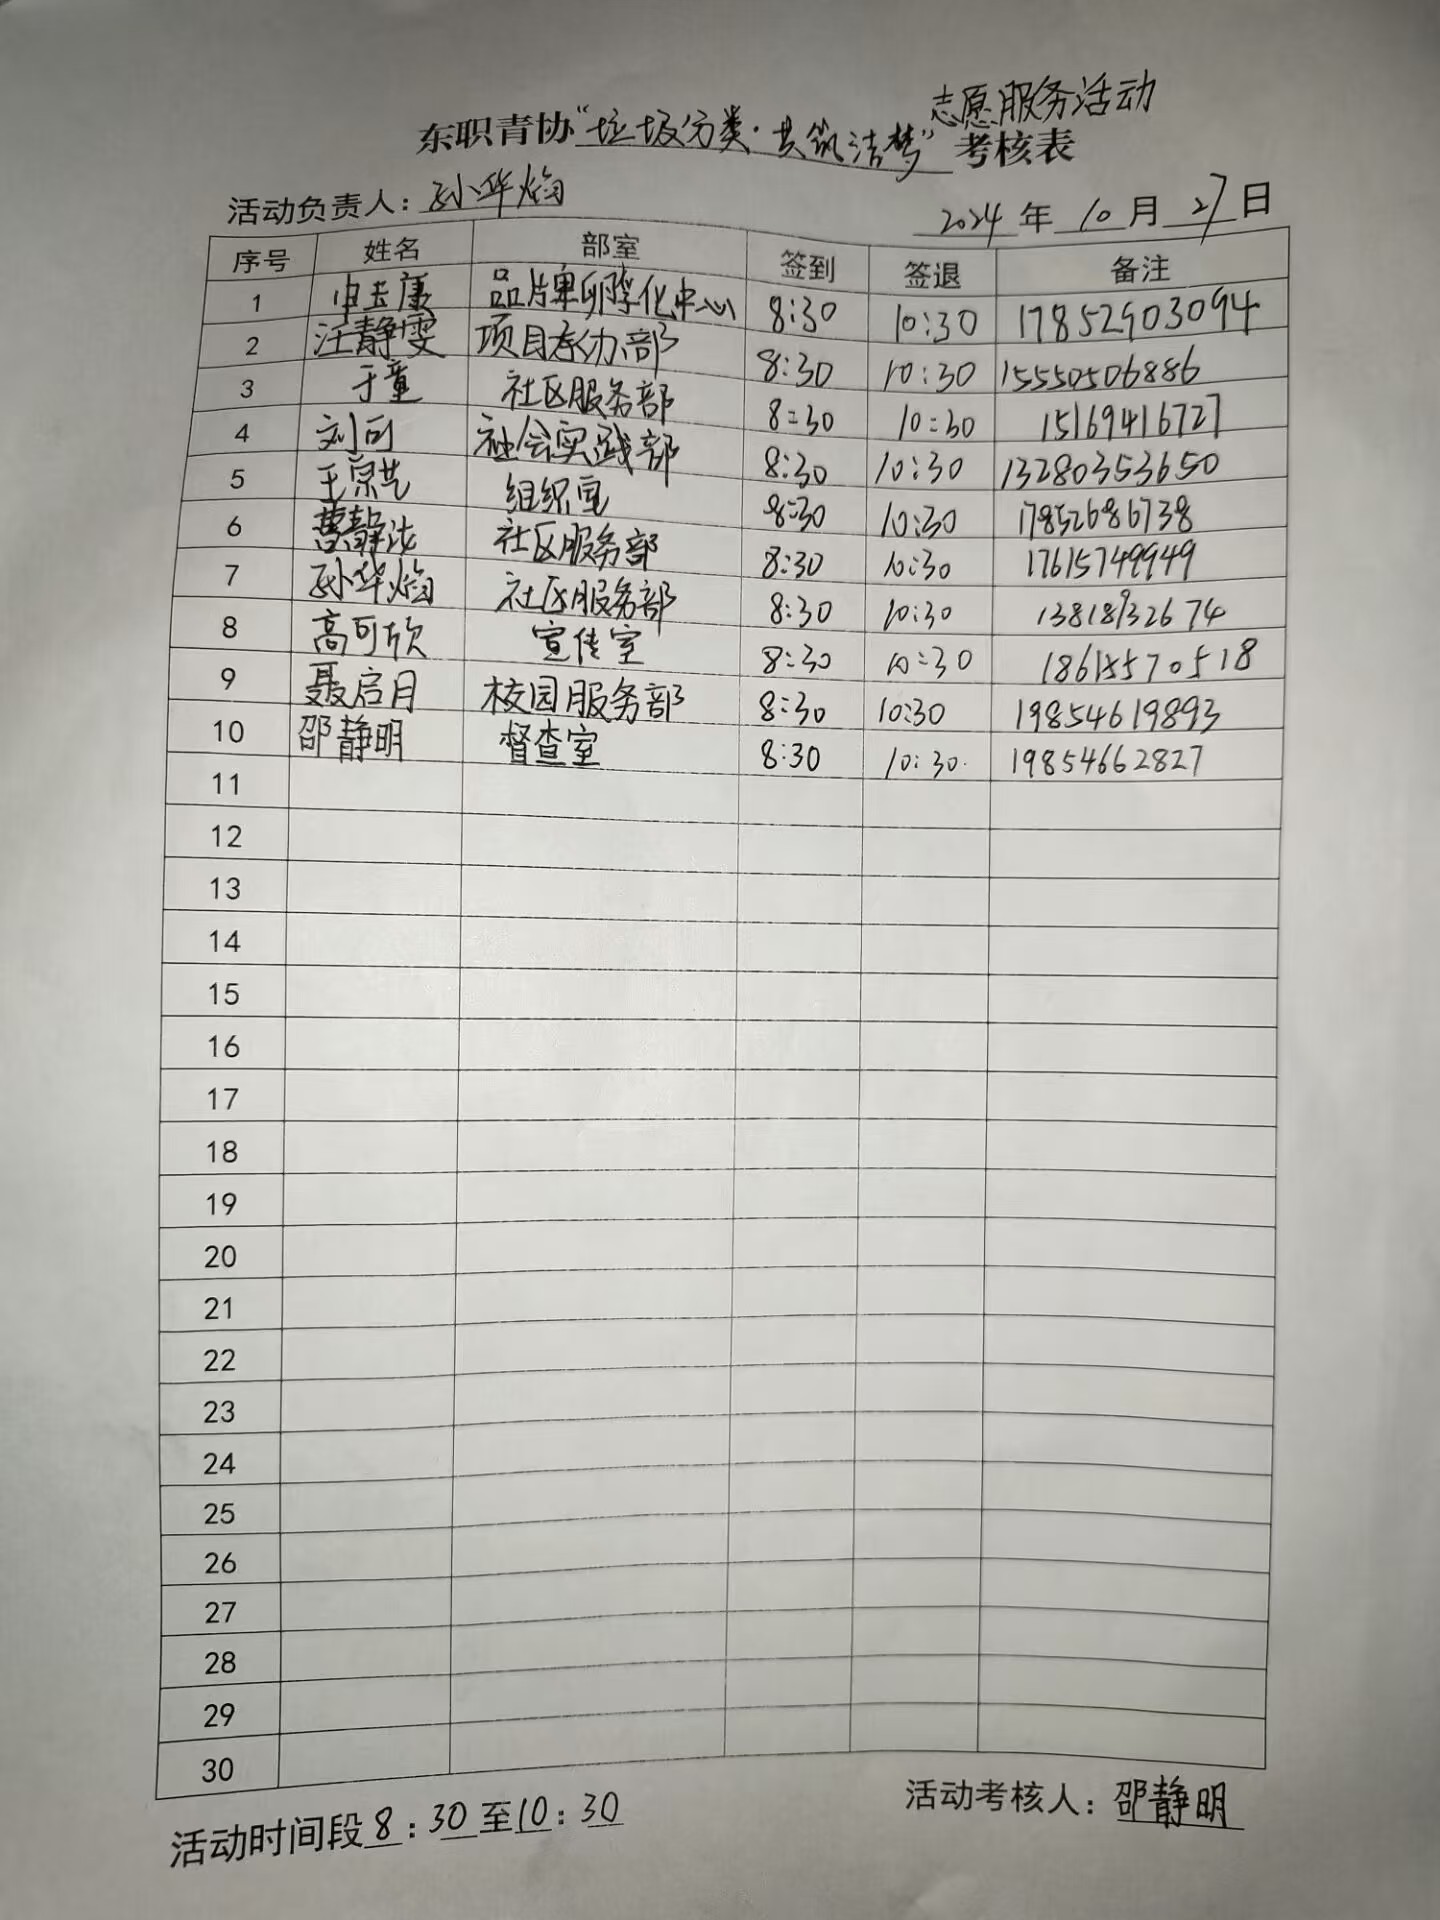 志愿服务活动
东职青协“垃圾分类·共筑洁梦”考核表
活动负责人：孙华焰
2024年10月27日
序号 姓名 部室 签到 签退 备注
1 申玉康 品牌孵化中心 8:30 10:30 17852903094
2 汪静雯 项目承办部 8:30 10:30 15550506886
3 于童 社区服务部 8:30 10:30 15169416727
4 刘可 社会实践部 8:30 10:30 13280353650
5 王宗艺 组织室 8:30 10:30 17852686738
6 曹静 社区服务部 8:30 10:30 17615749949
7 孙华焰 社区服务部 8:30 10:30 13818932674
8 高可欣 宣传室 8:30 10:30 18615570518
9 聂启月 校园服务部 8:30 10:30 19854619893
10 邵静明 督查室 8:30 10:30 19854662827
11
12
13
14
15
16
17
18
19
20
21
22
23
24
25
26
27
28
29
30
活动时间段8:30至10:30
活动考核人：邵静明